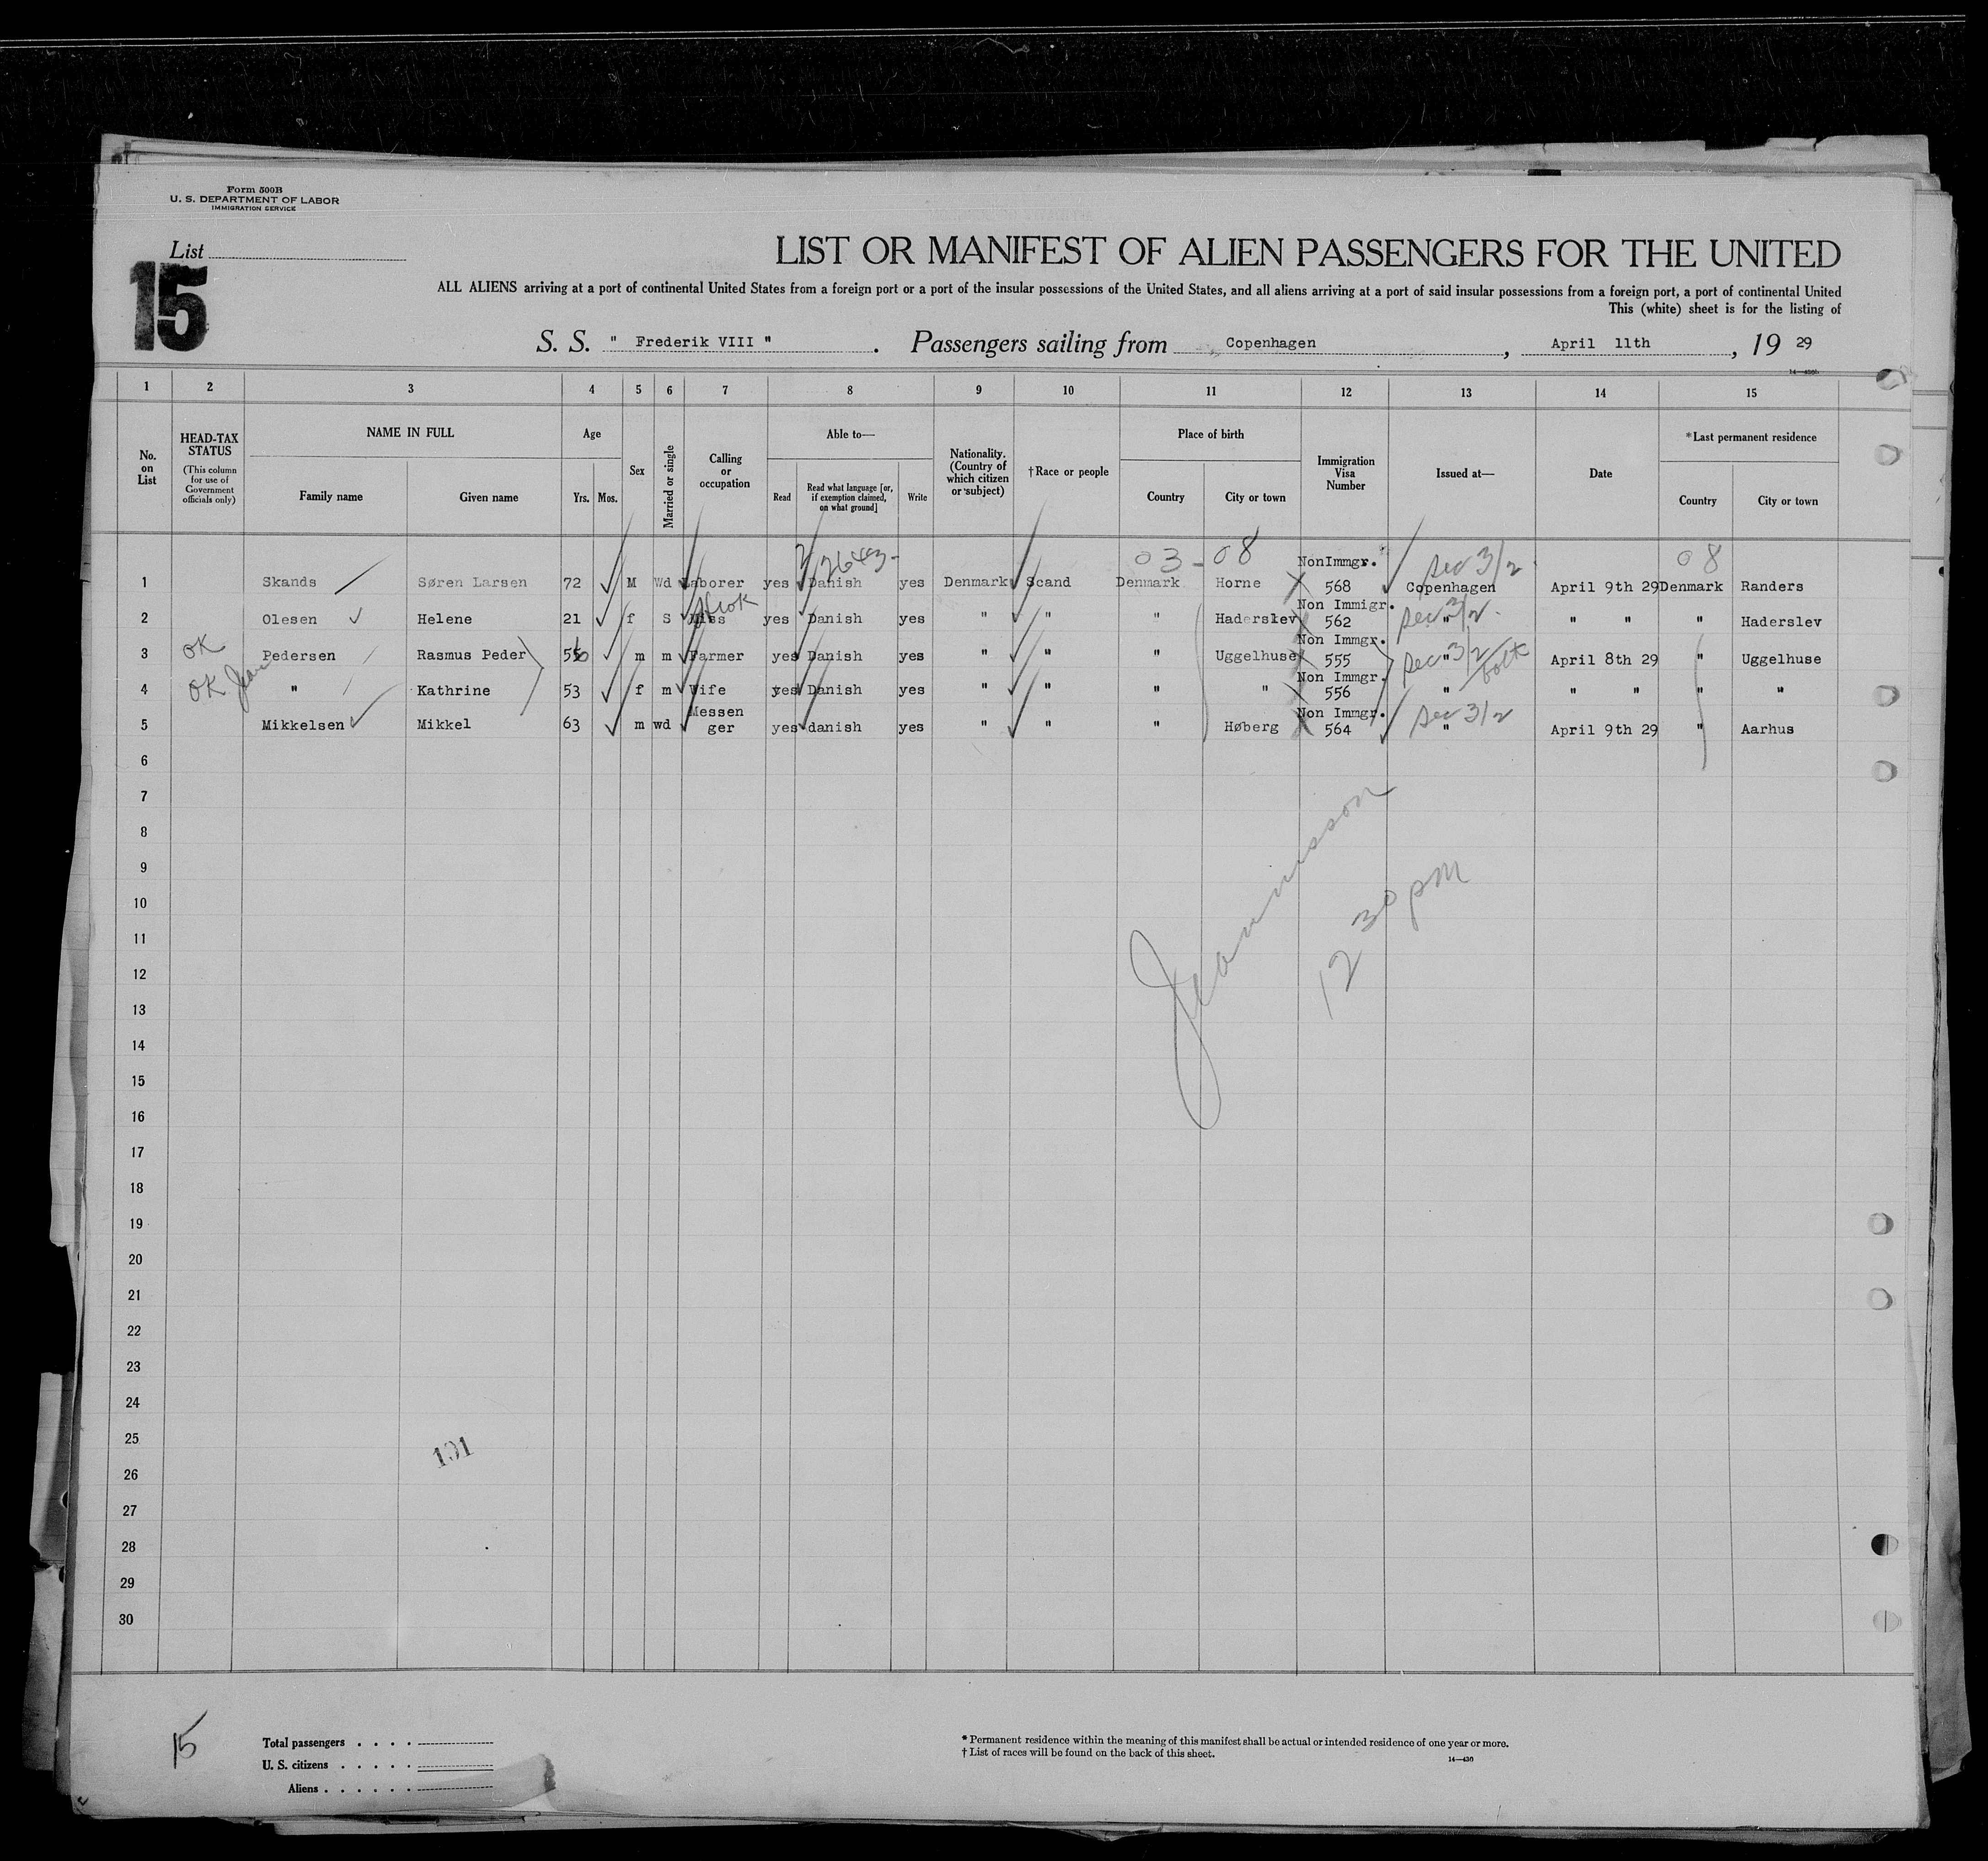 Form 500B
U. S. DEPARTMENT OF LABOR
IMMIGRATION SERVICE
List
15
LIST OR MANIFEST OF ALIEN PASSENGERS FOR THE UNITED
ALL ALIENS arriving at a port of continental United States from a foreign port or a port of the insular possessions of the United States, and all aliens arriving at a port of said insular possessions from a foreign port, a port of continental United
This (white) sheet is for the listing of
S. S. " Frederik VIII " . Passengers sailing from Copenhagen , April 11th , 19 29
1 2 3 4 5 6 7 8 9 10 11 12 13 14 15
No. on List
HEAD-TAX STATUS (This column for use of Government officials only)
NAME IN FULL
Family name Given name
Age
Yrs. Mos.
Sex
Married or single
Calling or occupation
Able to—
Read
Read what language [or, if exemption claimed, on what ground]
Write
Nationality. (Country of which citizen or subject)
†Race or people
Place of birth
Country City or town
Immigration Visa Number
Issued at—
Date
*Last permanent residence
Country City or town
03-08 08
1 Skands Søren Larsen 72 M Wd Laborer yes Danish yes Denmark Scand Denmark Horne NonImmgr. 568 Sec 3/2 Copenhagen April 9th 29 Denmark Randers
2 Olesen Helene 21 f S Miss yes Danish yes " " " Haderslev Non Immigr. 562 Sec 3/2 " " " " Haderslev
3 OK Pedersen Rasmus Peder 56 m m Farmer yes Danish yes " " " Uggelhuse Non Immgr. 555 Sec 3/2 " both April 8th 29 " Uggelhuse
4 OK " Kathrine 53 f m Wife yes Danish yes " " " " Non Immgr. 556 " " " " "
5 Mikkelsen Mikkel 63 m wd Messenger yes danish yes " " " Høberg Non Immgr. 564 Sec 3/2 " April 9th 29 " Aarhus
6
7
8
9
10
11
12
13
14
15
16
17
18
19
20
21
22
23
24
25
26
27
28
29
30
12 30 pm
191
15
Total passengers . . . .
U. S. citizens . . . . .
Aliens . . . . . .
* Permanent residence within the meaning of this manifest shall be actual or intended residence of one year or more.
† List of races will be found on the back of this sheet.
14—430